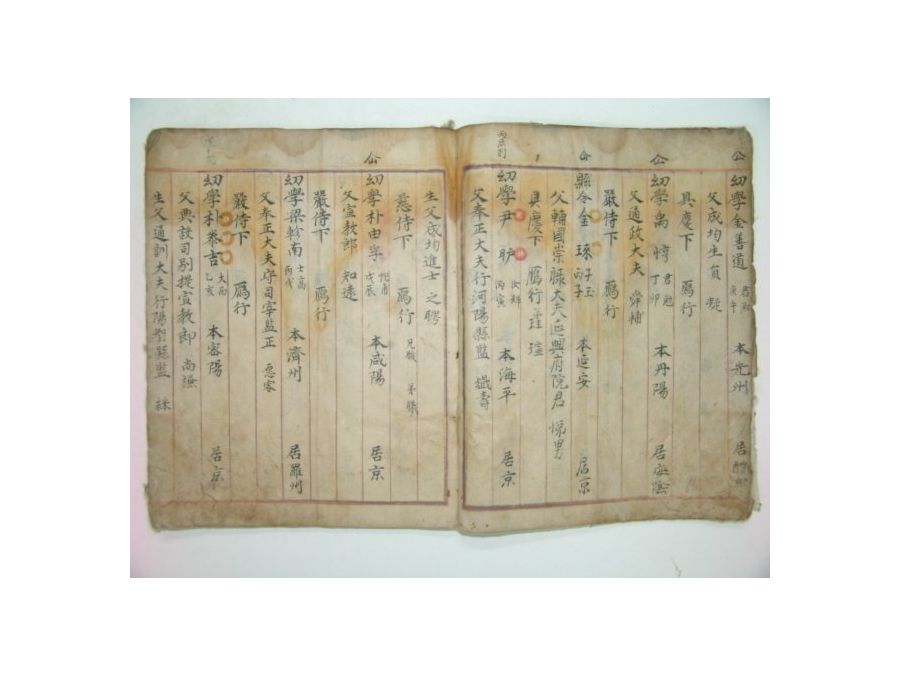 仚 幼學金善道 庚午 本光州 居醴
父成均生員
具慶下 鴈行
仚 幼學禹 君勉 丁卯 本丹陽 居
父通政大夫 舜輔
嚴侍下 鴈行
仚 縣令金琜 子玉 丙子 本延安 居京
父輔國崇祿大夫延興府院君 悌男
具慶下 鴈行 瑄
丙 別
幼學尹 丙寅 本海平 居京
父奉正大夫行河陽縣監
生父成均進士 之聘
慈侍下 鴈行 兄 弟
仚 幼學朴由 戊辰 本咸陽 居京
父宣教郎 知遠
嚴侍下 鴈行
幼學梁 南 士高 丙戌 本濟州 居羅州
父奉正大夫守司宰監正
嚴侍下 鴈行
幼學朴泰吉 大而 乙亥 本密陽 居京
父典設司別提宣教郎 尚謙
生父通訓大夫行陽智縣監